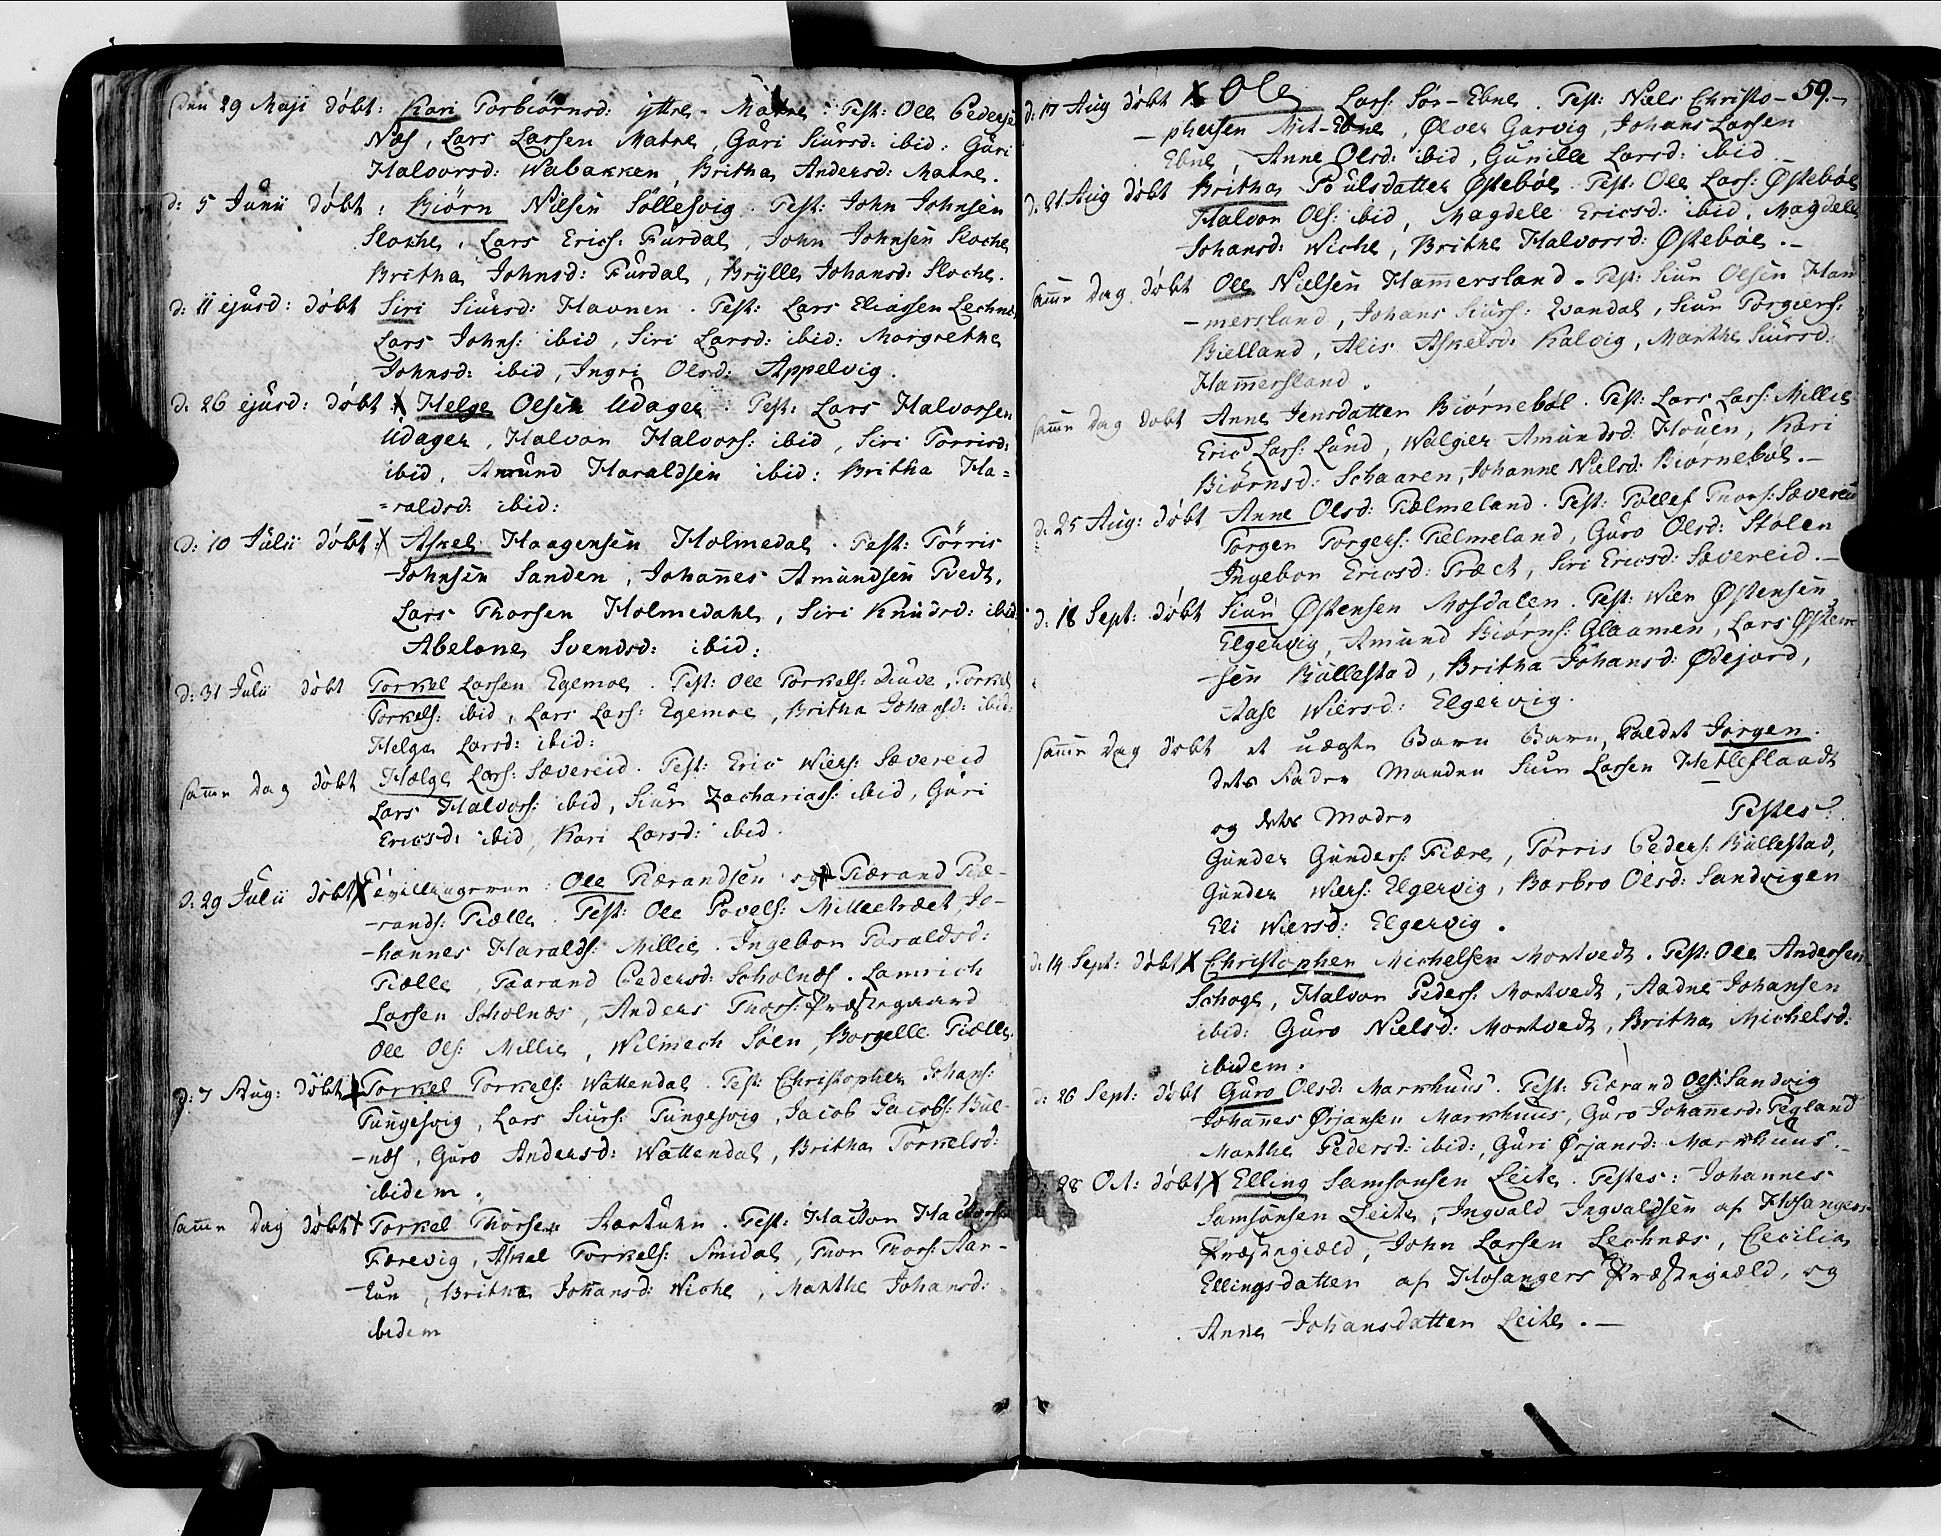 den 29 Maji døbt: Kari Torbiørnsd: ÿttre-Matre. Test: Ole Peders
Næs, Lars Larsen Matre, Guri Siursd: ibid: Guri
Halvorsd: Wabakken, Britha Andersd: Matre.
d: 5 Junii døbt: Biørn Nilsen Sollesvig. Test: John Johnsen
Slothe, Lars Erics: Furdal, John Johnsen Sloche
Britha Johnsd: Furdal, Brylle Johansd: Sloche.
d: 11 ejusd: døbt Siri Siursd: Havnen. Test: Lars Eliassen Lechnæs
Lars Johns: ibid, Siri Larsd: ibid: Margrethe
Johnsd: ibid, Ingri Olsd: Appelvig.
d: 26 ejusd: døbt X Helge Olsen Udager. Test: Lars Halvorsen
Udager, Halvor Halvors: ibid, Siri Torrisd:
ibid, Amund Haraldsen ibid: Britha Ha=
=raldsd: ibid:
d: 10 Julii døbt: X Askel Haagensen Holmedal. Test: Törris
Johnsen Sanden, Johannes Amundsen Tvedt,
Lars Thorsen Holmedahl, Siri Knudsd: ibid:
Abelone Svendsd: ibid:
d: 31 Julii døbt Torkel Larsen Egemoe. Test: Ole Torkels: Diuve, Torkel
Torkels: ibid, Lars Lars: Egemoe, Britha Johansd: ibid:
Helga Larsd: ibid:
samme dag døbt Hælge Lars: Sævereid. Test: Eric Wiers: Sævereid
Lars Halvors: ibid, Siur Zacharias: ibid, Guri
Ericsd: ibid, Kari Larsd: ibid.
d: 29 Julii døbt X Tvillingerne: Ole Tiærandsen og Tiærand Tiæ-
-rands: Tiælle. Test: Ole Povels: Milletræet, Jo-
-hannes Haralds: Millie. Ingebor Taraldsd:
Tiælle, Taarand Pedersd: Scholnæs. Lamrich
Larsen Scholnæs, Anders Thors: Præstegaard
Ole Ols: Millie, Wilmech Söen, Borgelle Tiælle.
d: 7 Aug: døbt X Torkel Torkels: Wattendal. Test: Christopher Johans:
Tungesvig, Lars Siurs: Tungesvig, Jacob Jacobs: Bul-
-næs, Guro Andersd: Wattendal, Britha Torkelsd:
ibidem.
samme dag døbt X Torkel Thorsen Aartuhn. Test: Hactor Hactors:
Færevig, Askel Torkels: Smidal, Thor Thors: Aar-
-tun, Britha Johansd: Wiche, Marthe Johansd:
ibidem
59.
d: 17 Aug døbt X Ole Lars: Sør-Ebne. Test: Niels Christo-
-phersen Mit-Ebne, Ølver Garvig, Johans Larsen
Ebne, Anne Olsd: ibid, Gunille Larsd: ibid.
d: 21 Aug døbt Britha Poulsdatter Østebøe. Test: Ole Lars: Østebøe
Halvor Ols: ibid, Magdele Ericsd: ibid, Magdele
Johansd: Wiche, Brithe Halvorsd: Østebøe.
samme dag døbt Ole Nielsen Hammersland. Test: Siur Olsen Ham
-mersland, Johans Siurs: Qvandal, Siur Torgiers:
Bielland, Alis Askelsd: Kalvig, Marthe Siursd:
Hammersland.
samme dag døbt Anne Jensdatter Biørnebøl. Test: Lars Lars: Millie
Eric Lars: Lund, Walgier Amundsd: Houen, Kari
Biørnsd: Schaaren, Johanne Nielsd: Biørnebøl.
d: 25 Aug: døbt Anne Olsd: Tælmeland. Test: Tollef Thors: Sævereid
Torger Torgers: Telmeland, Guro Olsd: Stølen
Ingebor Ericsd: Træet, Siri Ericsd: Sævereid.
d: 18 Sept: døbt Siur Østensen Mosdalen. Test: Wier Østensen
Elgervig, Amund Biørns: Glaamen, Lars Østen
-sen Bullestad, Britha Johansd: Ødejord,
Aase Wiersd: Elgervig.
samme dag døbt et uægte Barn Barn, kaldet Jørgen.
dets Fader Manden Siur Larsen Hetleflaadt
og dets Moder Testes:
Gunder Gunders: Fiære, Torris Peders: Bullestad,
Gunder Wiers: Elgervig, Barbro Olsd: Sandvigen
Eli Wiersd: Elgervig.
d: 14 Sept: døbt X Christopher Michelsen Mortvedt. Test: Ole Andersen
Schoge, Halvor Peders: Mortvedt, Aadne Johansen
ibid: Guro Nielsd: Mortvedt, Britha Michelsd:
ibidem.
d: 26 Sept: døbt Guro Olsd: Markhuus. Test: Tiærand Ols: Sandvig
Johannes Ørjansen Markhuus, Guro Johannesd: Tegland
Marthe Pedersd: ibid:, Guri Ørjansd: Markhuus.
d: 28 Oct: døbt X Elling Samsonsen Leite. Testes: Johannes
Samsonsen Leite, Ingvald Ingvaldsen af Hosangers
Præstegiæld, John Larsen Lechnæs, Cecilia
Ellingsdatter af Hosangers Præstegiæld, og
Anne Johansdatter Leite.